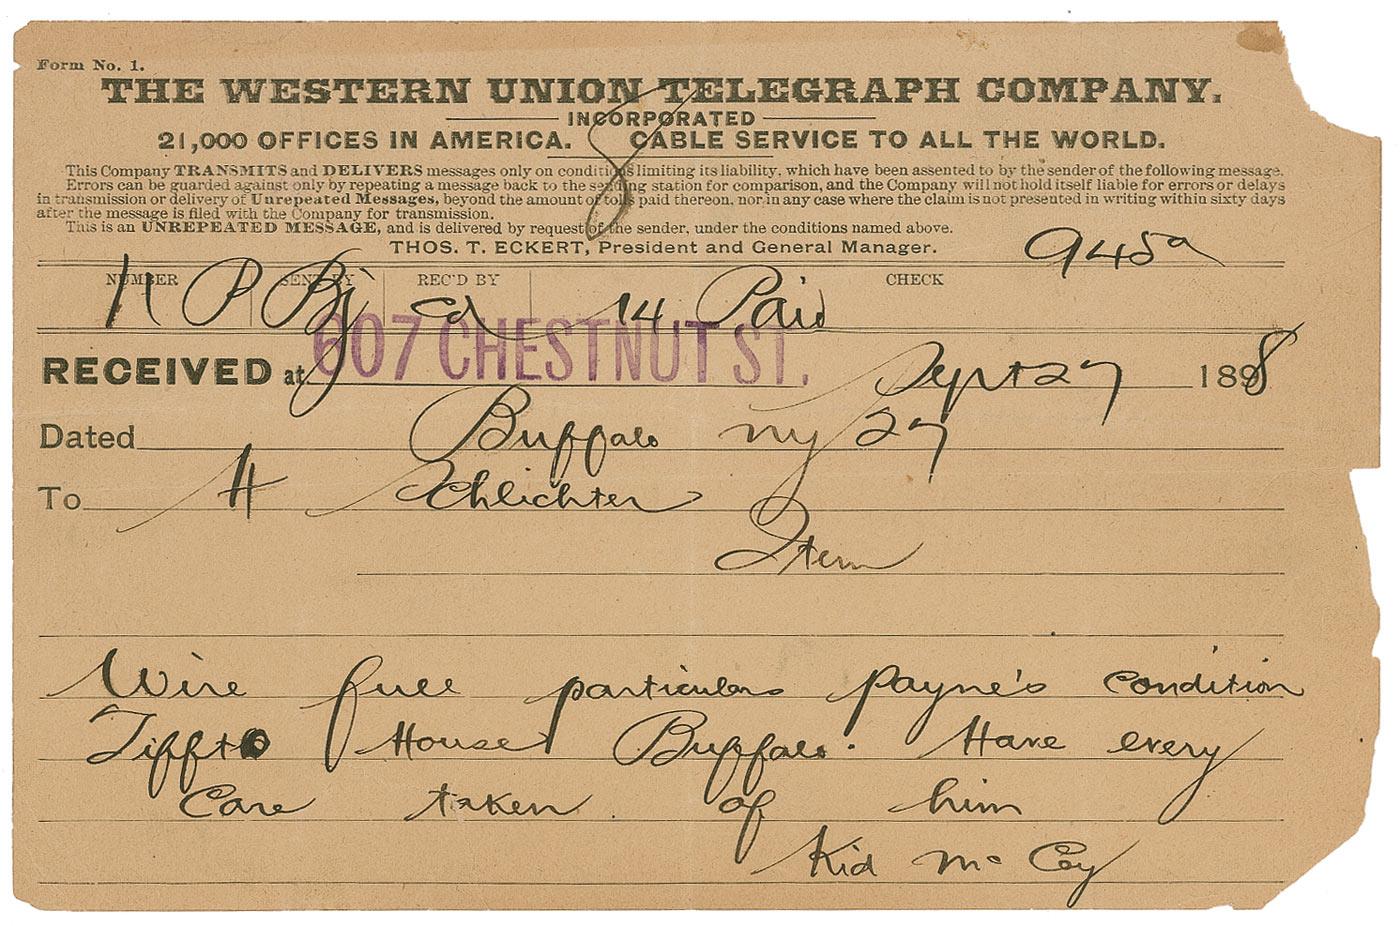 Form No. 1.
THE WESTERN UNION TELEGRAPH COMPANY.
INCORPORATED
21,000 OFFICES IN AMERICA. CABLE SERVICE TO ALL THE WORLD.
This Company TRANSMITS and DELIVERS messages only on conditions limiting its liability, which have been assented to by the sender of the following message.
Errors can be guarded against only by repeating a message back to the sending station for comparison, and the Company will not hold itself liable for errors or delays
in transmission or delivery of Unrepeated Messages, beyond the amount of tolls paid thereon, nor in any case where the claim is not presented in writing within sixty days
after the message is filed with the Company for transmission.
This is an UNREPEATED MESSAGE, and is delivered by request of the sender, under the conditions named above.
THOS. T. ECKERT, President and General Manager.
8
945a
NUMBER SENT BY REC'D BY CHECK
11 P Bj Cd 14 Paid
607 CHESTNUT ST.
RECEIVED at Sept 27 1898
Dated Buffalo NY 27
To H Schlichter
Item
Wire full particulars Payne's condition
Tifft House Buffalo. Have every
Care taken of him
Kid McCoy